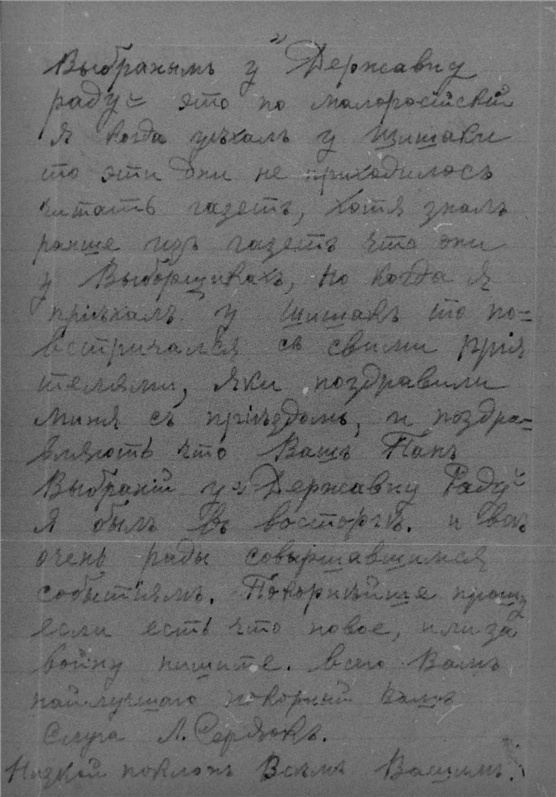 Выбранымъ у "Державну
раду" это по малоросійскій
Я когда уѣхалъ у Шишаки
то эти дни не приходилось
читать газетъ, хотя зналъ
ранше изъ газетъ что они
у Выборщикахъ, но когда я
пріѣхалъ у Шишакъ то по=
встричался съ своими прія
телями, яки поздравили
миня съ пріѣздомъ, и поздра=
вляютъ что Вашъ Панъ
Выбраній у "Державну Раду"
Я былъ въ восторгѣ. и всѣ
очень рады совершавшимся
событіямъ. Покорнѣйше прошу
если есть что новое, или за
войну пишите. всего Вамъ
найлучшаго покорный вамъ
Слуга Л. Сердюкъ.
Низкій поклонъ Всѣмъ Вашимъ.